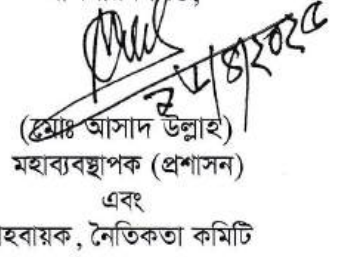 ২৮/৪/২০২৫
(মোঃ আসাদ উল্লাহ)
মহাব্যবস্থাপক (প্রশাসন)
এবং
হবায়ক, নৈতিকতা কমিটি